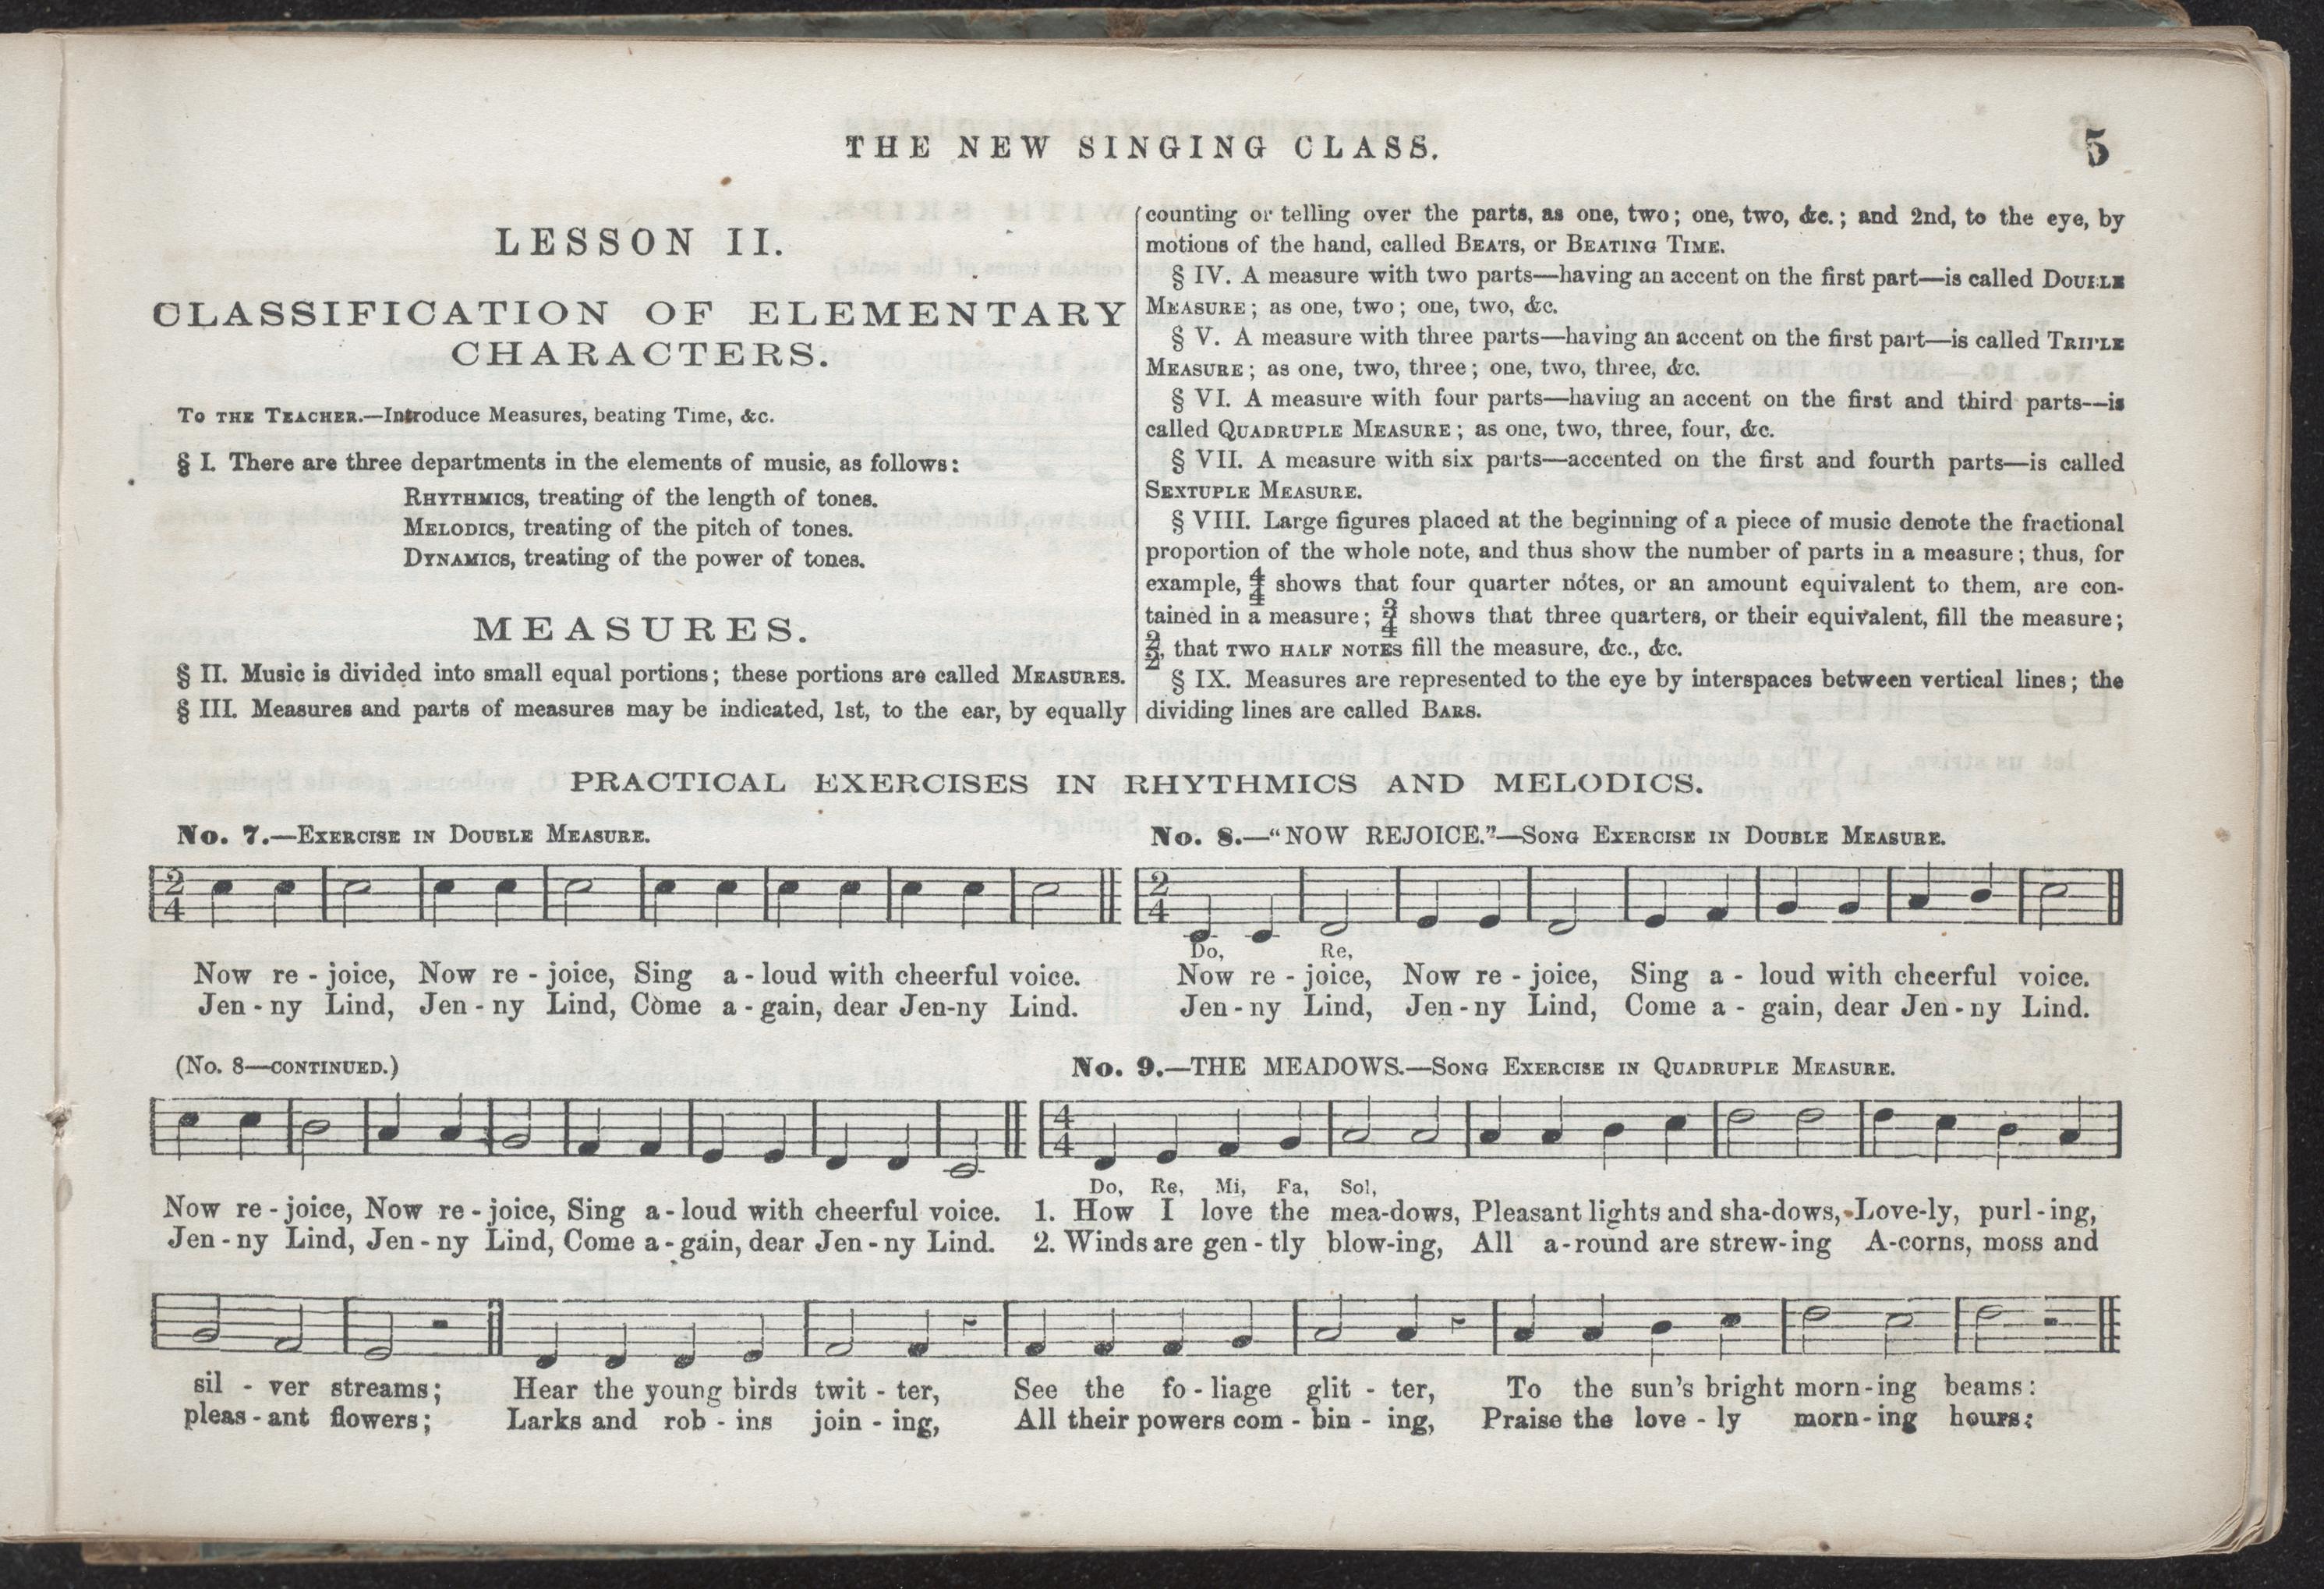 THE NEW SINGING CLASS.
5
LESSON II.
CLASSIFICATION OF ELEMENTARY
CHARACTERS.
TO THE TEACHER.—Introduce Measures, beating Time, &c.
§ I. There are three departments in the elements of music, as follows:
RHYTHMICS, treating of the length of tones.
MELODICS, treating of the pitch of tones.
DYNAMICS, treating of the power of tones.
MEASURES.
§ II. Music is divided into small equal portions; these portions are called MEASURES.
§ III. Measures and parts of measures may be indicated, 1st, to the ear, by equally
counting or telling over the parts, as one, two; one, two, &c.; and 2nd, to the eye, by
motions of the hand, called BEATS, or BEATING TIME.
§ IV. A measure with two parts—having an accent on the first part—is called DOUBLE
MEASURE; as one, two; one, two, &c.
§ V. A measure with three parts—having an accent on the first part—is called TRIPLE
MEASURE; as one, two, three; one, two, three, &c.
§ VI. A measure with four parts—having an accent on the first and third parts—is
called QUADRUPLE MEASURE; as one, two, three, four, &c.
§ VII. A measure with six parts—accented on the first and fourth parts—is called
SEXTUPLE MEASURE.
§ VIII. Large figures placed at the beginning of a piece of music denote the fractional
proportion of the whole note, and thus show the number of parts in a measure; thus, for
example, 4/4 shows that four quarter notes, or an amount equivalent to them, are con-
tained in a measure; 3/4 shows that three quarters, or their equivalent, fill the measure;
2/2, that TWO HALF NOTES fill the measure, &c., &c.
§ IX. Measures are represented to the eye by interspaces between vertical lines; the
dividing lines are called BARS.
PRACTICAL EXERCISES IN RHYTHMICS AND MELODICS.
No. 7.—EXERCISE IN DOUBLE MEASURE.
2/4
Now re - joice, Now re - joice, Sing a - loud with cheerful voice.
Jen - ny Lind, Jen - ny Lind, Come a - gain, dear Jen-ny Lind.
No. 8.—"NOW REJOICE."—SONG EXERCISE IN DOUBLE MEASURE.
2/4
Do, Re,
Now re - joice, Now re - joice, Sing a - loud with cheerful voice.
Jen - ny Lind, Jen - ny Lind, Come a - gain, dear Jen - ny Lind.
(No. 8—CONTINUED.)
Now re - joice, Now re - joice, Sing a - loud with cheerful voice.
Jen - ny Lind, Jen - ny Lind, Come a - gain, dear Jen - ny Lind.
No. 9.—THE MEADOWS.—SONG EXERCISE IN QUADRUPLE MEASURE.
4/4
Do, Re, Mi, Fa, Sol,
1. How I love the mea-dows, Pleasant lights and sha-dows, Love-ly, purl - ing,
2. Winds are gen - tly blow-ing, All a - round are strew-ing A-corns, moss and
sil - ver streams; Hear the young birds twit - ter, See the fo - liage glit - ter, To the sun's bright morn - ing beams:
pleas - ant flowers; Larks and rob - ins join - ing, All their powers com - bin - ing, Praise the love - ly morn - ing hours: